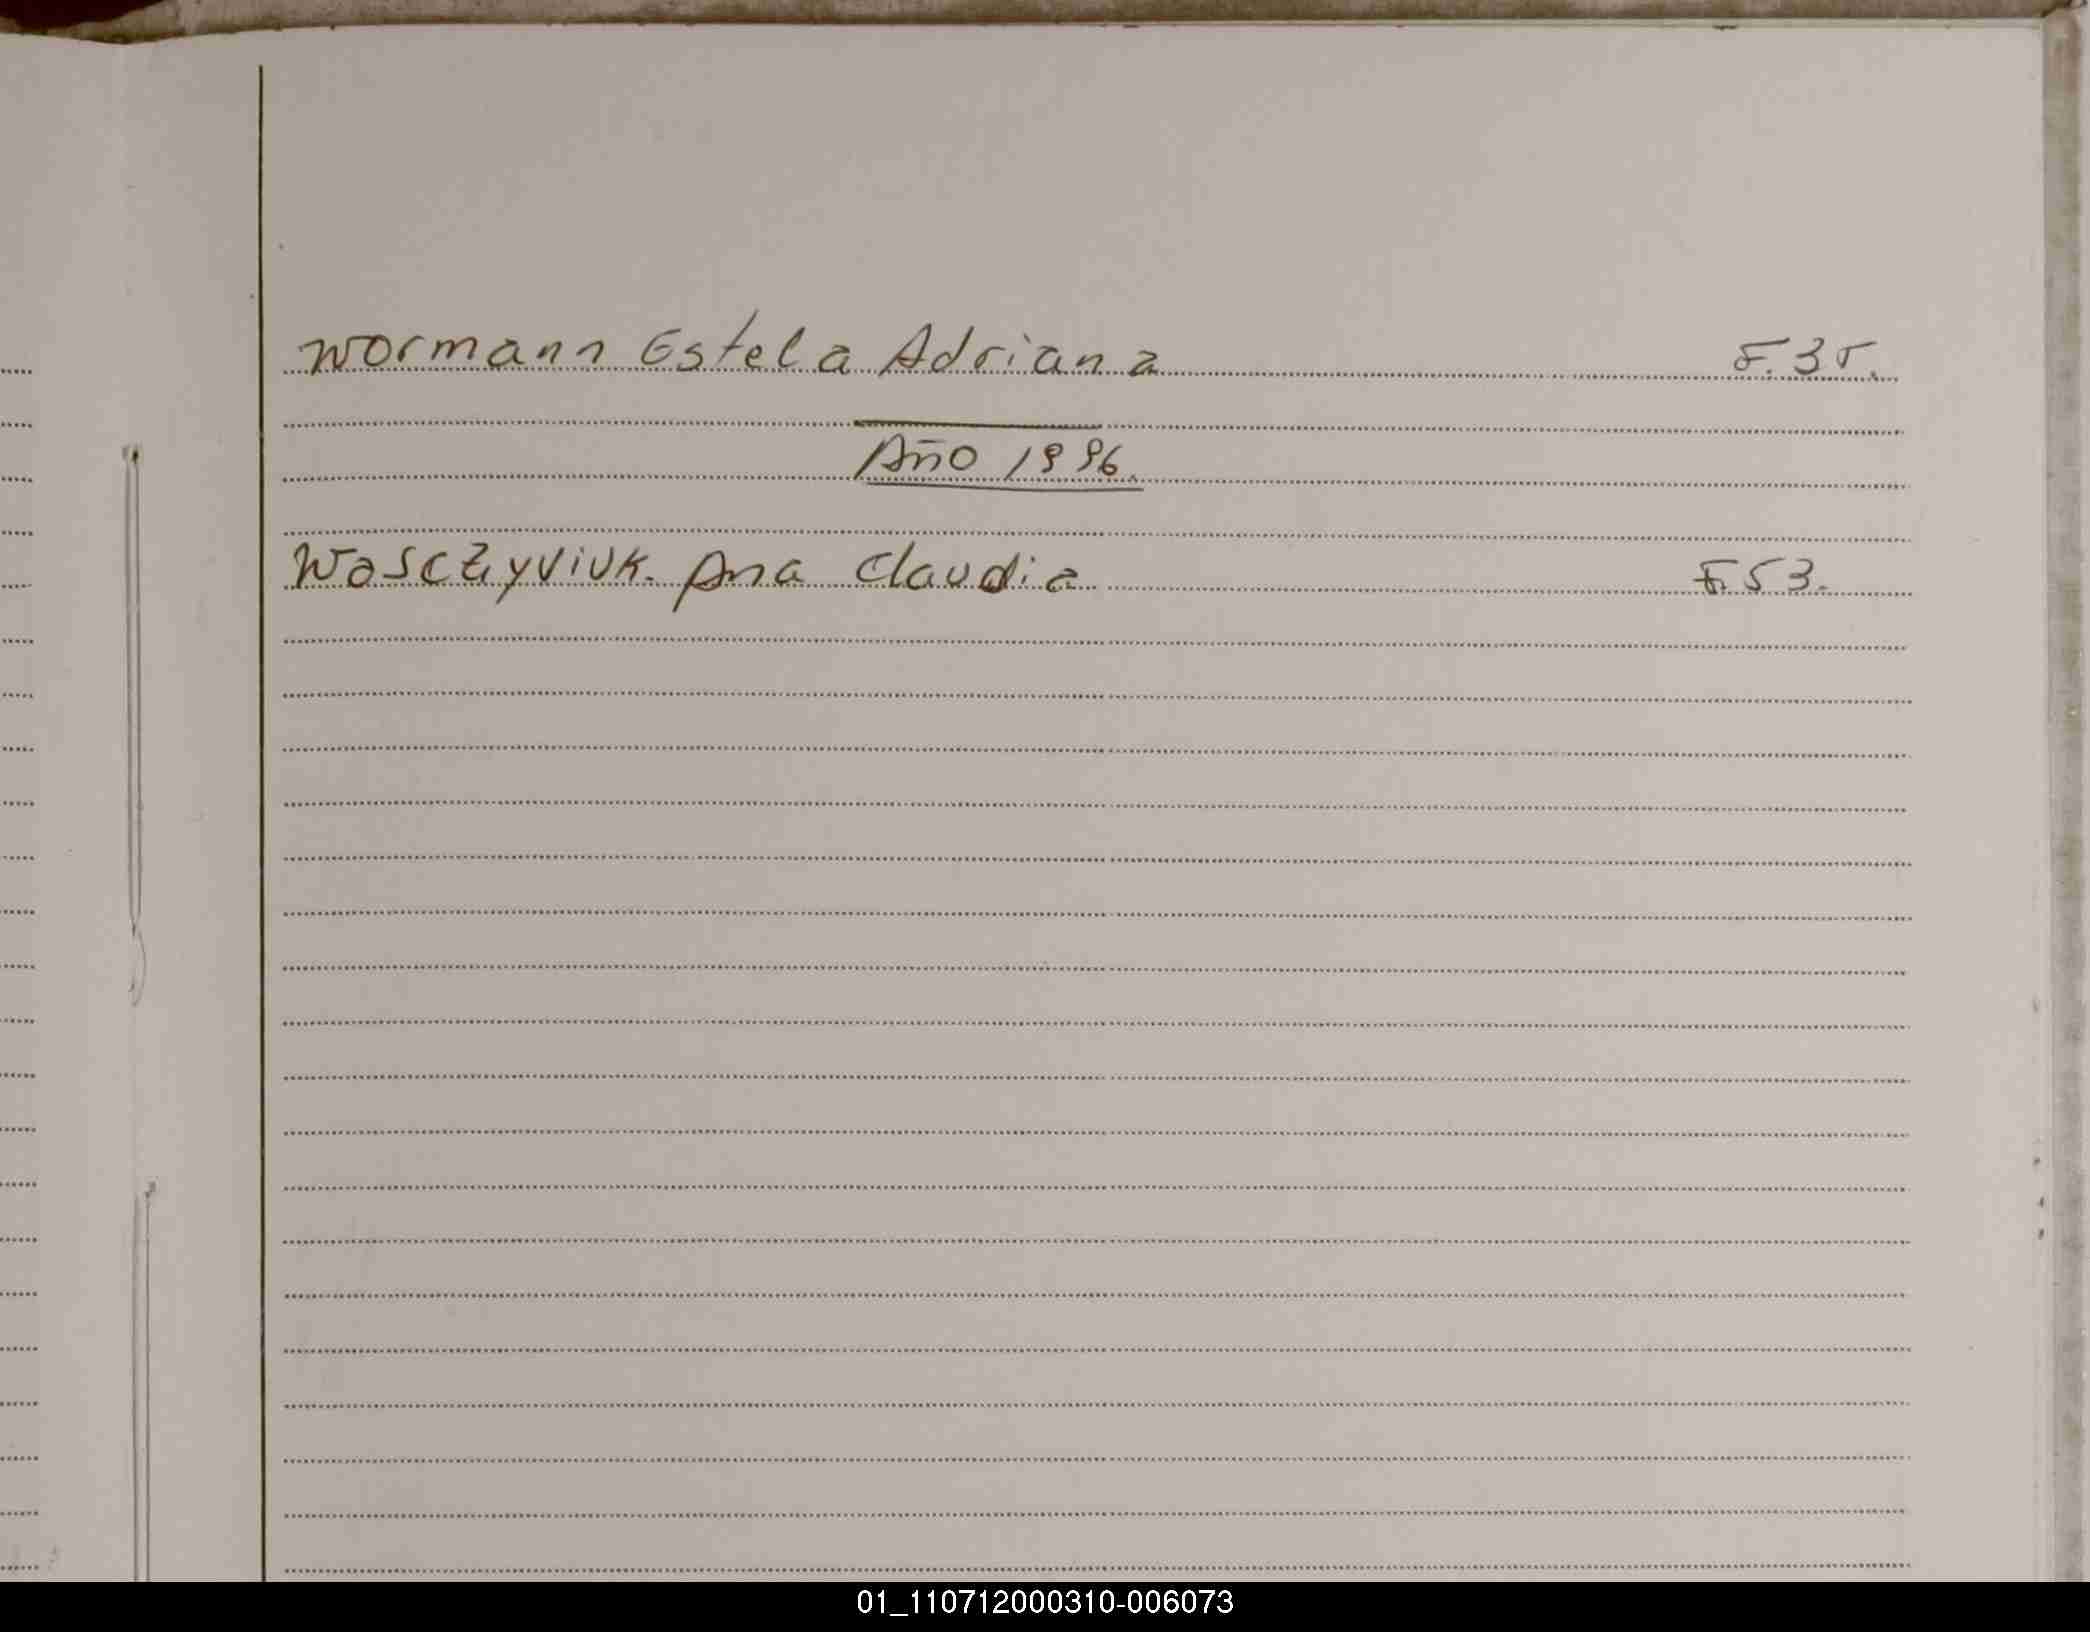 Wormann Estela Adriana F.35.
Año 1996.
Wosczyviuk. Ana Claudia F.53.
01_110712000310-006073